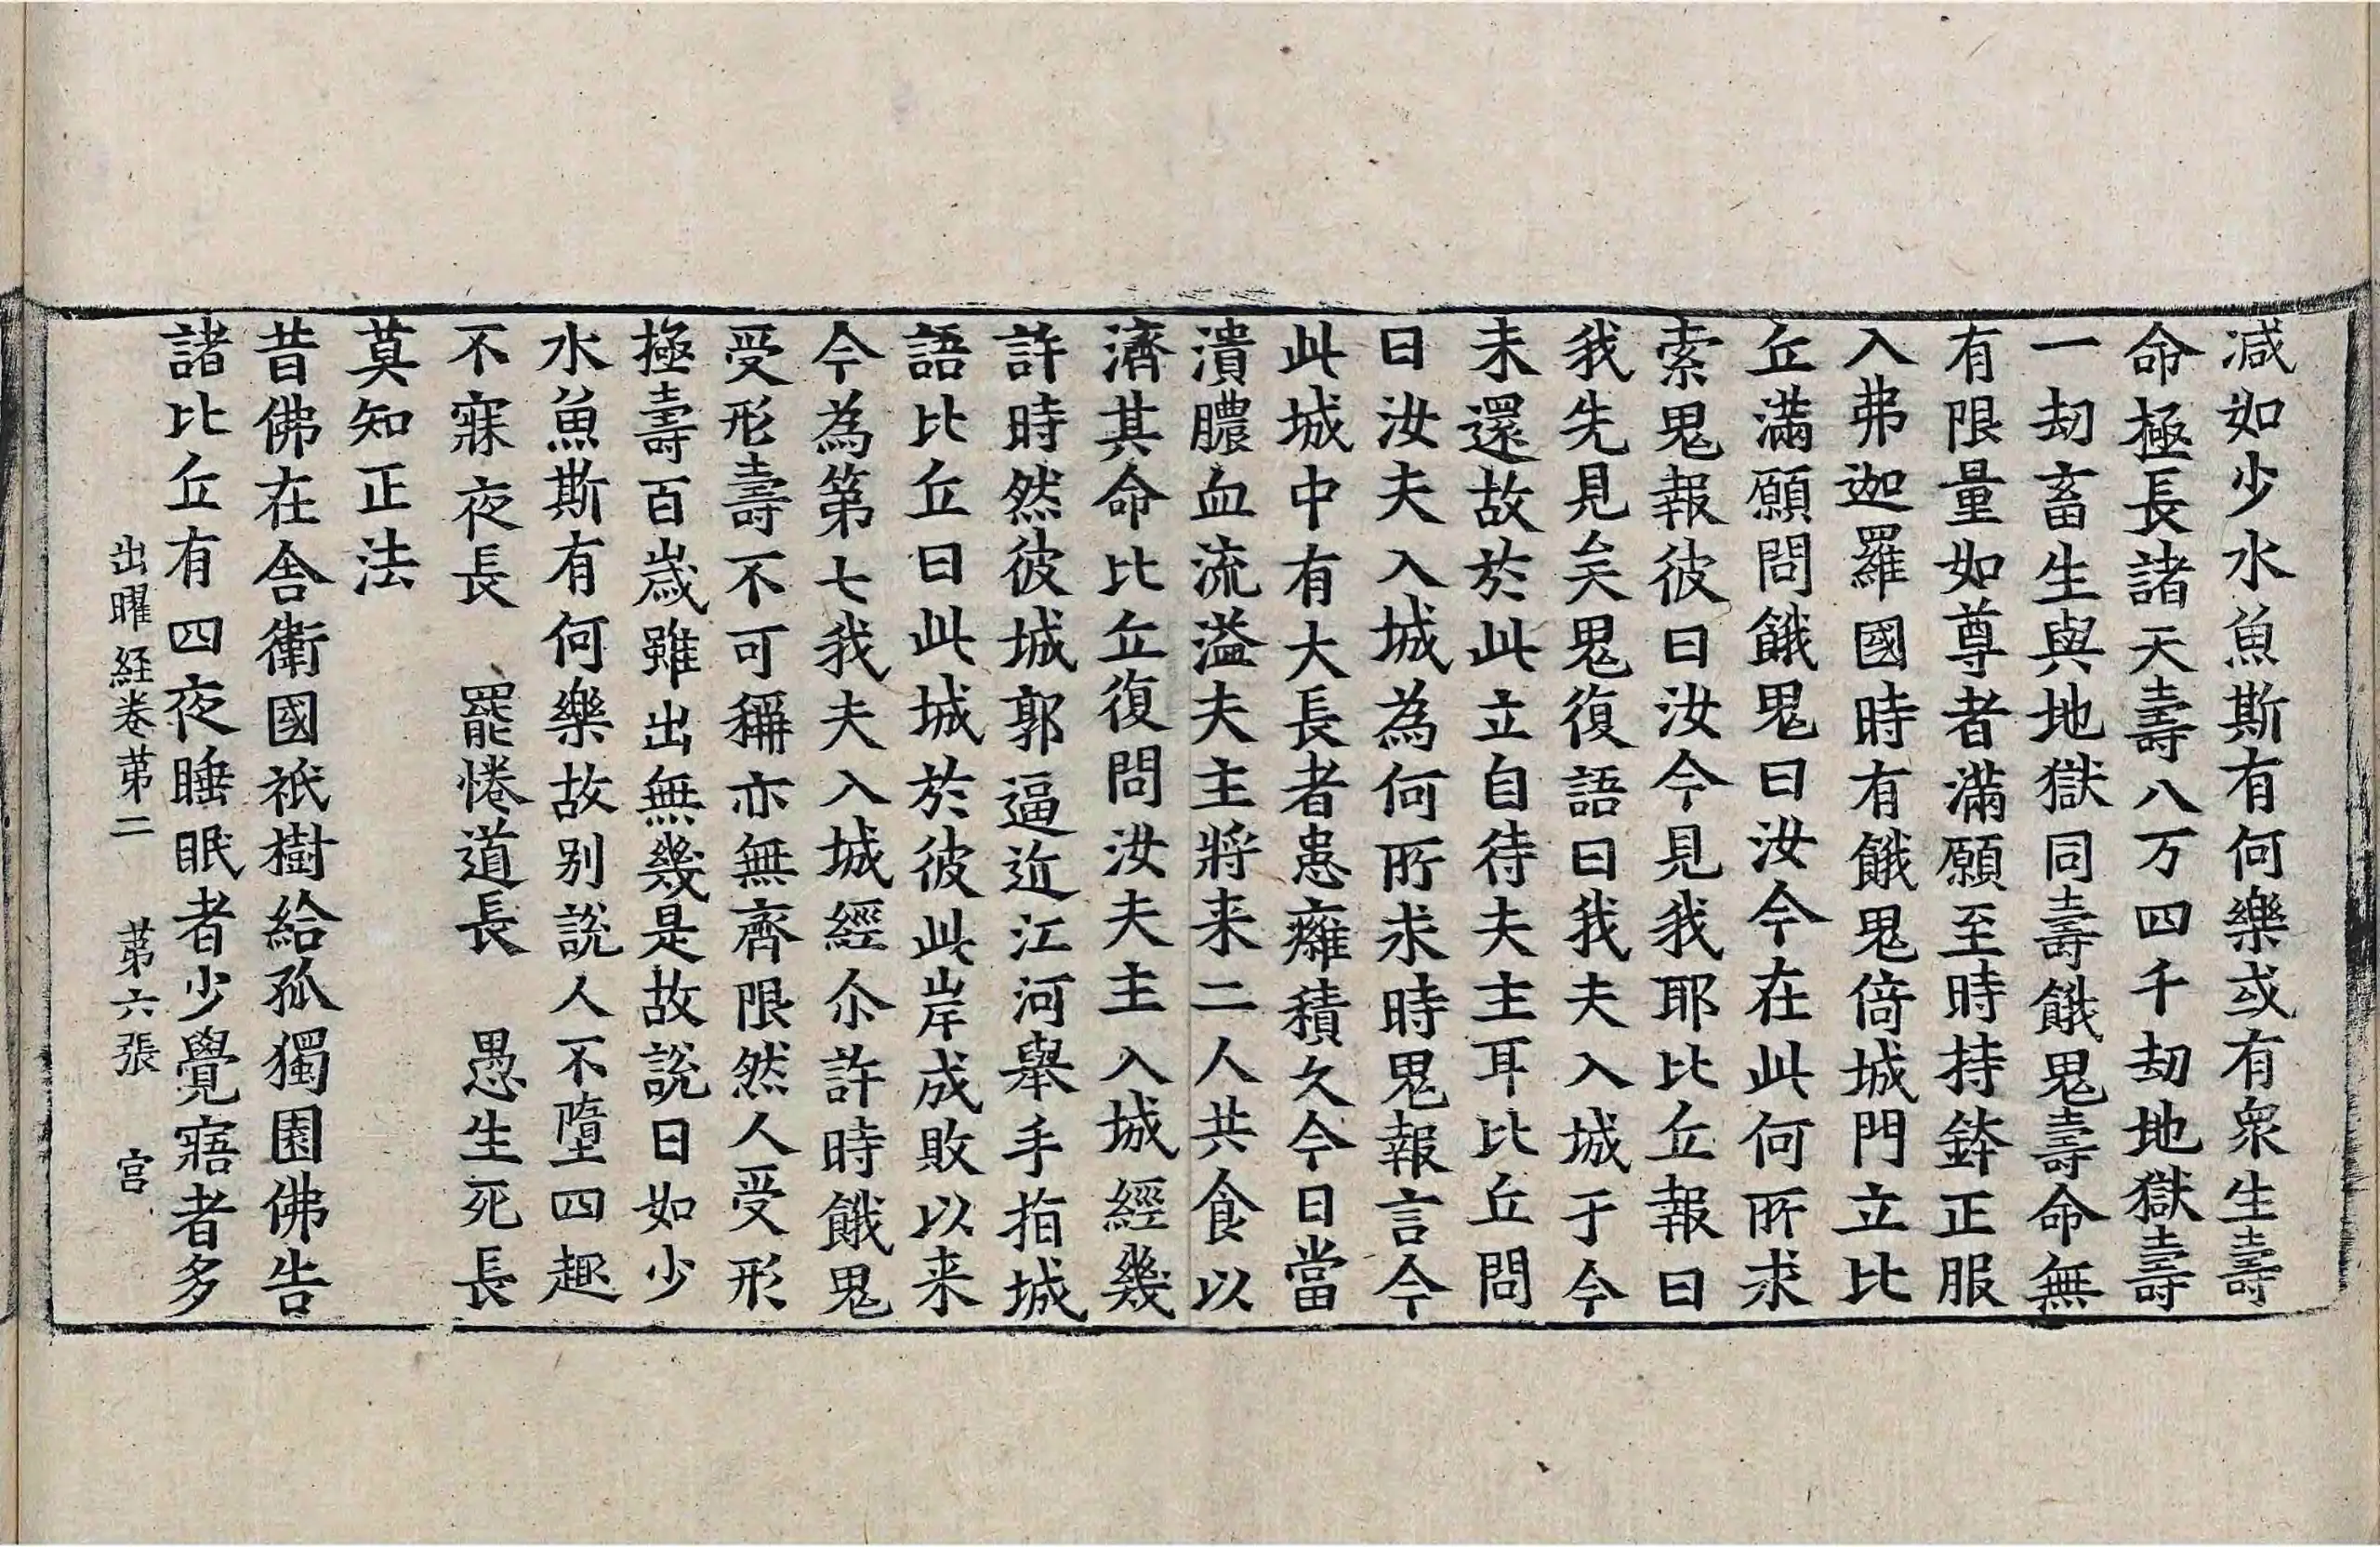 減如少水魚斯有何樂或有衆生壽
命極長諸天壽八万四千劫地獄壽
一劫畜生與地獄同壽餓鬼壽命無
有限量如尊者滿願至時持鉢正服
入弗迦羅國時有餓鬼倚城門立比
丘滿願問餓鬼曰汝今在此何所求
索鬼報彼曰汝今見我耶比丘報曰
我先見矣鬼復語曰我夫入城于今
未還故於此立自待夫主耳比丘問
曰汝夫入城為何所求時鬼報言今
此城中有大長者患癰積久今日當
潰膿血流溢夫主將来二人共食以
濟其命比丘復問汝夫主入城經幾
許時然彼城郭逼近江河舉手指城
語比丘曰此城於彼此岸成敗以来
今為第七我夫入城經尒許時餓鬼
受形壽不可稱亦無齊限然人受形
極壽百歲雖出無幾是故說曰如少
水魚斯有何樂故別說人不墮四趣
不寐夜長　罷惓道長　愚生死長
莫知正法
昔佛在舍衛國祇樹給孤獨園佛告
諸比丘有四夜睡眠者少覺寤者多
出曜経卷苐二　苐六張　宮